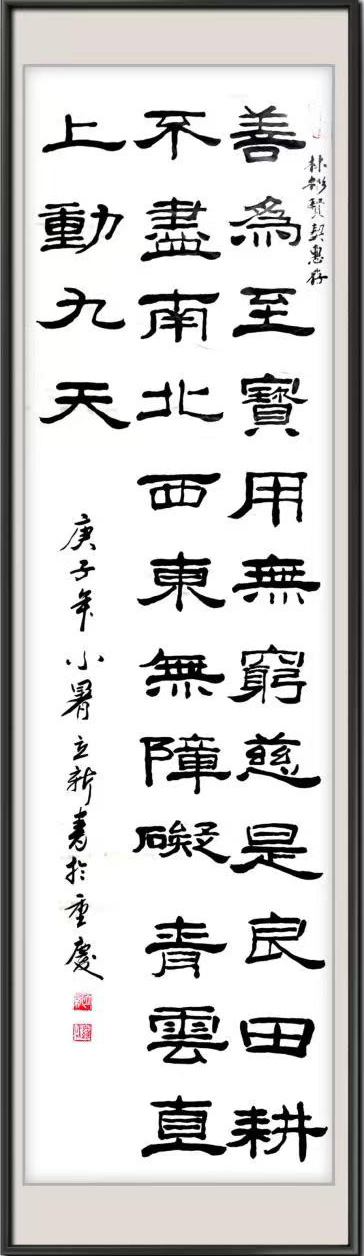 善為至寶用無窮慈是良田耕
不盡南北西東無障礙青雲直
上動九天
庚子年小暑立新書於重慶